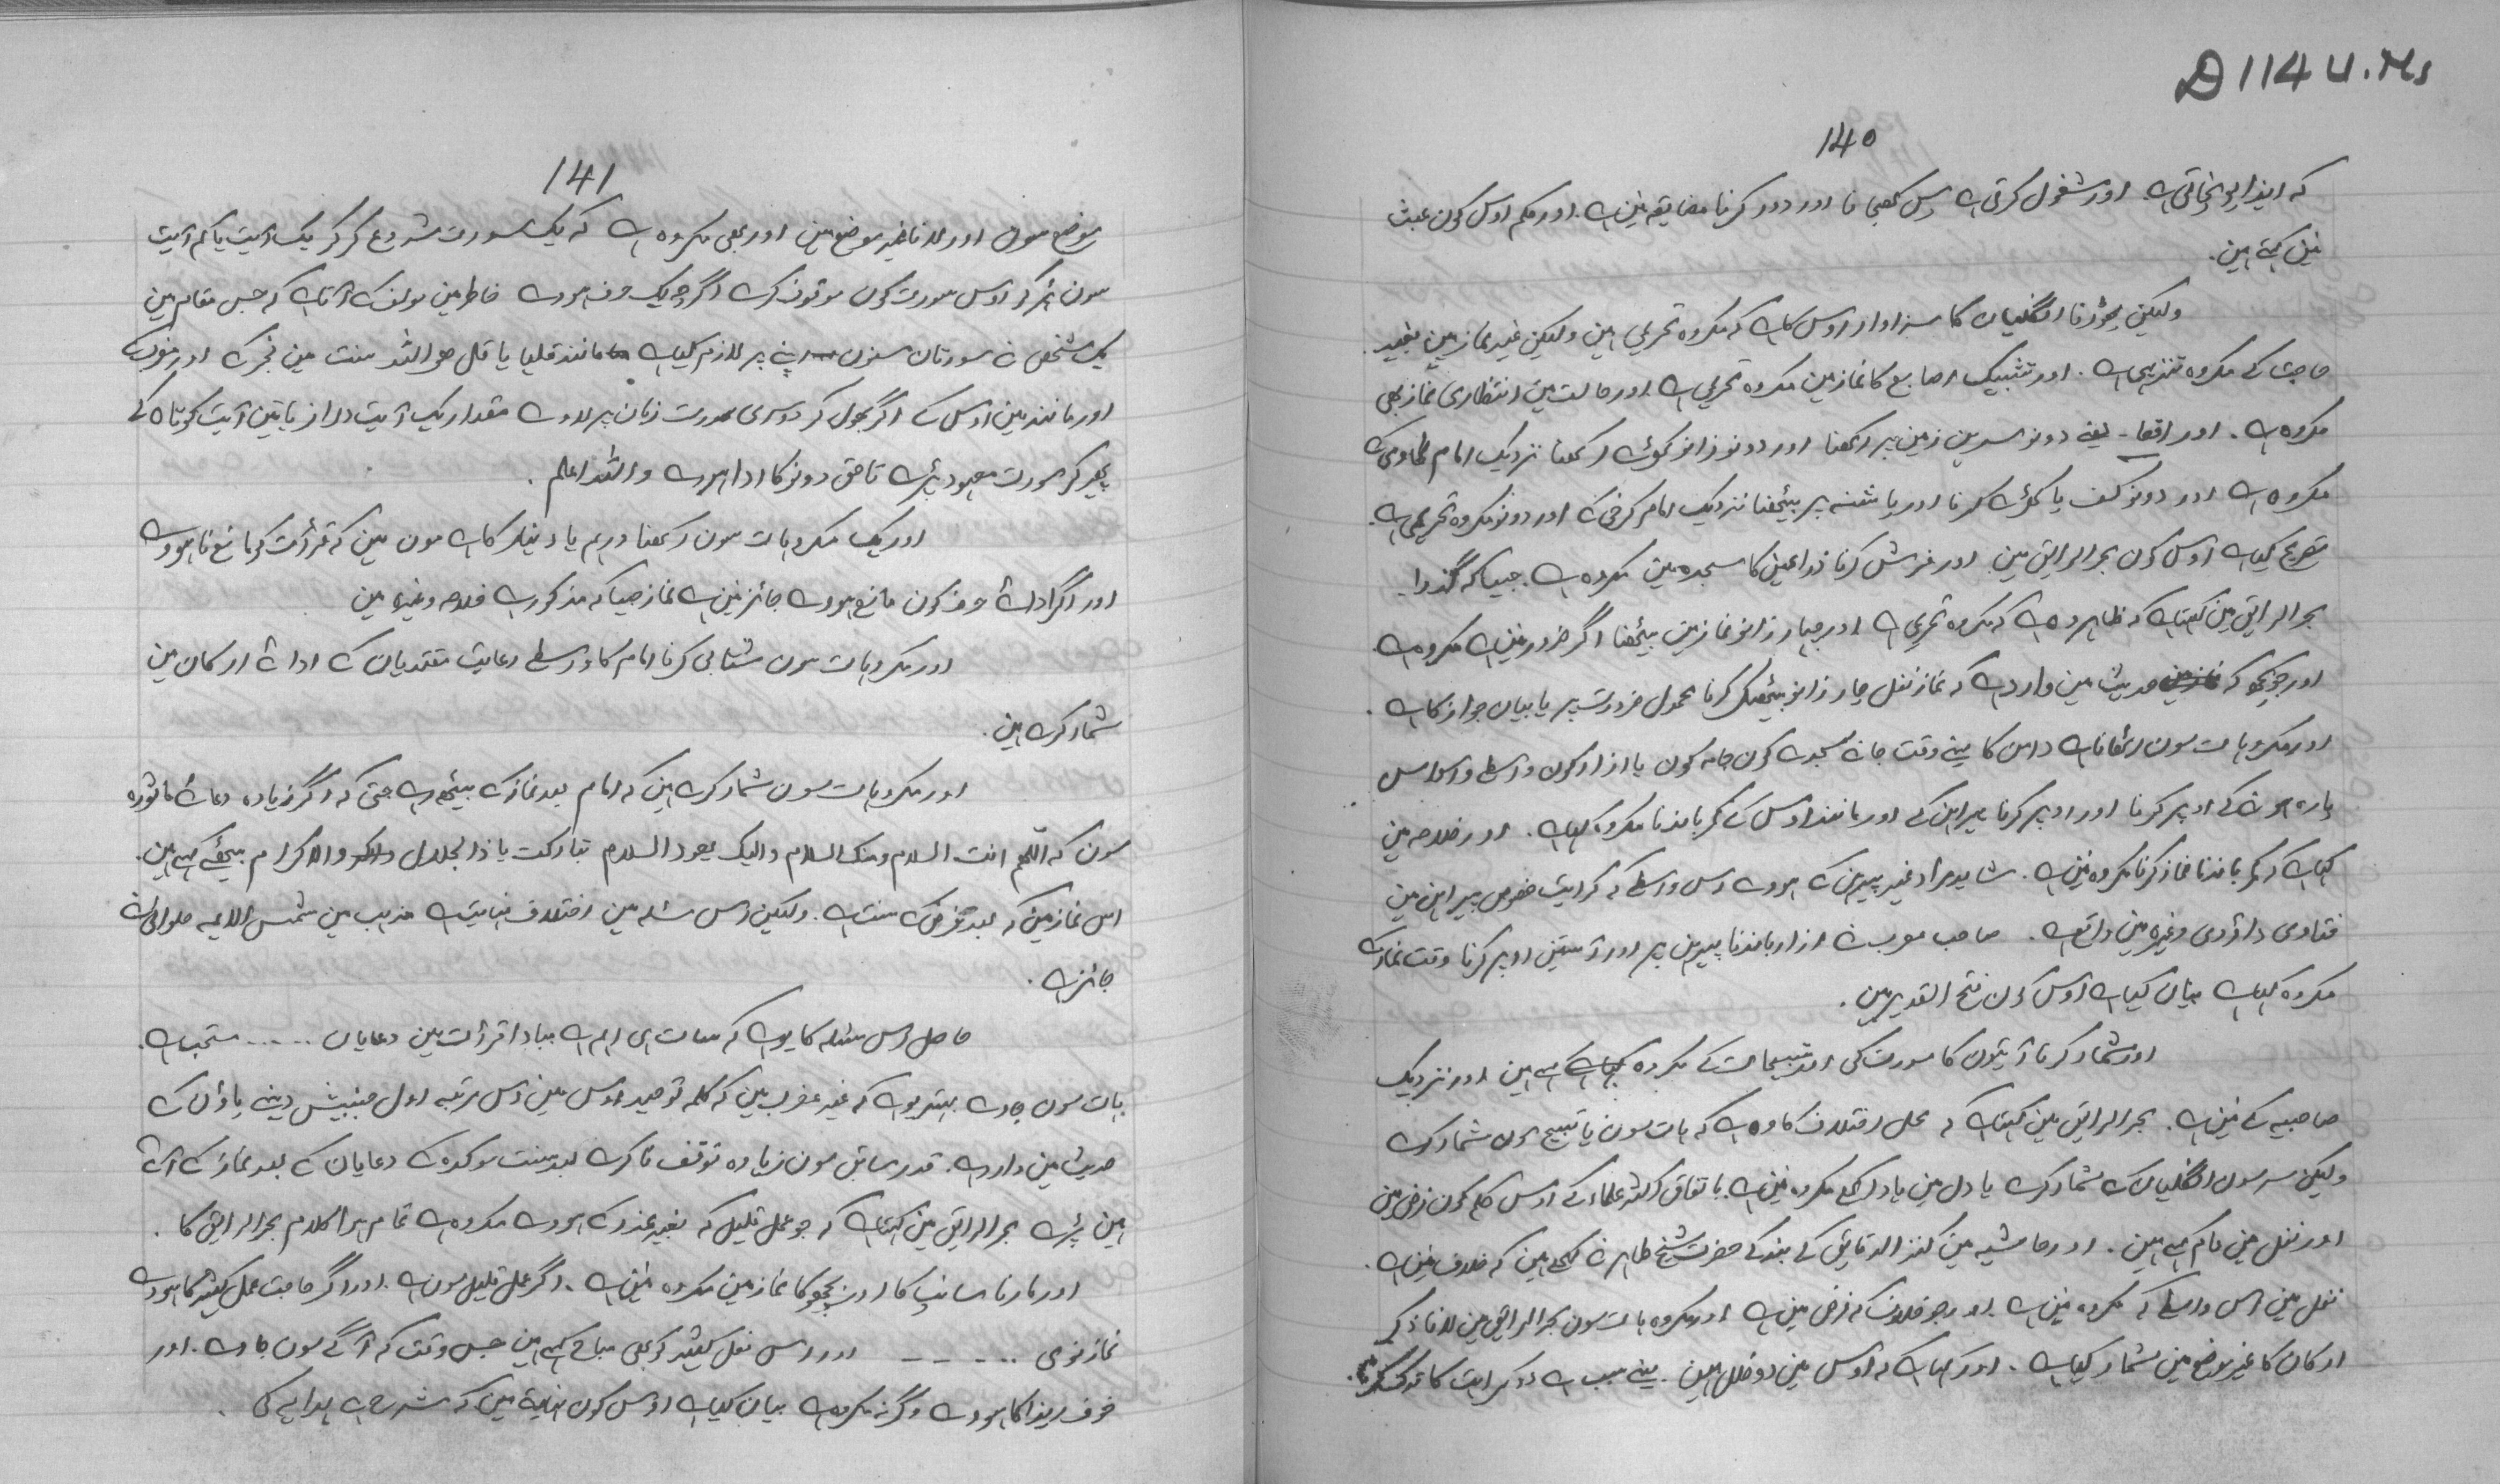 D 114 U.Ms
140
کہ ایذا پونچاتی ہے اور مشغول کرتی ہے پس کھجانا اور دور کرنا مضایقہ نین ہے۔ اور حکم اوس کون عبث
نین کہتے ہین۔
ولیکن پھوڑنا انگلیان کا سزاوار اوس کا ہے کہ مکروہ تحریمی ہین ولیکن غیر نماز مین بغیر
حاجت کے مکروہ تنزیہی ہے۔ اور تشبیک اصابع کا نماز مین مکروہ تحریمی ہے اور حالت مین انتظاری نماز بھی
مکروہ ہے۔ اور اقعا۔ یعنے دونو سرین زمین پر رکھنا اور دونو زانو کھڑے رکھنا نزدیک امام طحاوی کے
مکروہ ہے اور دونو کف پا کھڑے کرنا اور پاشنہ پر بیٹھنا نزدیک امام کرخی کے اور دونو مکروہ تحریمی ہے۔
تصریح کیا ہے اوس کون بحر الرایق مین اور فرش کرنا ذراعین کا سجدہ مین مکروہ ہے۔ جیسا کہ گذرا۔
بحر الرایق مین کہتا ہے کہ ظاہر وہ ہے کہ مکروہ تحریمی ہے اور چہار زانو نماز مین بیٹھنا اگر ضرور نین ہے مکروہ ہے۔
اور جو کچھ کہ حدیث مین وارد ہے کہ نماز نفل چار زانو بیٹھکر کرنا محمول ضرورت پر یا بیان جواز کا ہے۔
اور مکروہات سون اٹھانا ہے دامن کا یعنے وقت جانے سجدے کون جامہ کون یا ازار کون واسطے وسواس
پارہ ہونے کے اوپر کرنا اور اوپر کرنا پیراہن کے اور مانند اوس کے کمر باندنا مکروہ کہا ہے۔ اور خلاصہ مین
کہا ہے کہ کمر باندنا نماز کرنا مکروہ نین ہے۔ شاید مراد غیر پیرہن کے ہووے اس واسطے کہ کراہیت خصوص پیراہن مین
فتاوی داؤدی وغیرہ مین واقع ہے۔ صاحب مغرب نے ازار باندنا پیرہن پر اور آستین اوپر کرنا وقت نماز کے
مکروہ کہا ہے بیان کیا ہے اوس کون فتح القدیر مین۔
اور شمار کرنا آیتون کا سورت کی اور تسبیحات کے مکروہ کہے ہین اور نزدیک
صاحبیہ کے نین ہے۔ بحر الرایق مین کہتا ہے کہ محل اختلاف کا وہ ہے کہ ہات سون یا تسبیح سون شمار کرے
ولیکن سر سون انگلیان کے شمار کرے یا دل مین یاد رکھے مکروہ نین ہے باتفاق اکثر علماء کے اوس کلم کون فرض مین
اور نفل مین عام کہے ہین۔ اور حاشیہ مین کنز الدقایق کے بعد کے حضرت شیخ طاہر نے لکھے ہین کہ خلاف نین ہے۔
نفل مین اس واسطے کہ مکروہ نین ہے اور جو خلاف کہ فرض مین ہے اور مکروہات سون بحر الرایق مین لانا ذکر
ارکان کا غیر موضع مین شمار کیا ہے۔ اور کہا ہے کہ اوس مین دو خلل ہین۔ یعنے سبب ہے اور کراہیت کا ترک کرنا
141
موضع سون اور لانا غیر موضع مین اور بھی مکروہ ہے کہ یک سورت شروع کر کر یک آیت یا کم آیت
سون پڑھ کر اوس سورت کون موقوف کرے اگرچہ یک حرف ہووے خاطر مین مولف کے آتا ہے کہ جس مقام مین
یک شخص نے سورتان سنون اپنے پر لازم کیا ہے مانند قلیا یا قل ھو اللہ سنت مین فجر کے اور مغرب کے
اور مانند مین اوس کے اگر بھول کر دوسری سورت زبان پر لاوے مقدار یک آیت دراز یا تین آیت کوتاہ کے
پھیر کر سورت معہود پڑے تا حق دونو کا ادا ہووے واللہ اعلم۔
اور یک مکروہات سون رکھنا درہم یا دینار کا ہے مون مین کہ قرأت کو مانع نا ہووے
اور اگر ادائے حرف کون مانع ہووے جائز نین ہے نماز جیسا کہ مذکور ہے خلاصہ وغیرہ مین
اور مکروہات سون شتابی کرنا امام کا واسطے رعایت مقتدیان کے ادائے ارکان مین
شمار کرے ہین۔
اور مکروہات سون شمار کرے ہین کہ امام بعد نماز کے بیٹھے رہے حتی کہ اگر زیادہ دعائے ماثورہ
سون کہ اللّٰھم انت السلام ومنک السلام والیک یعود السلام تبارکت یا ذا الجلال والاکرام بیٹھے کہے ہین۔
اس نماز مین کہ بعد فرض کے سنت ہے۔ ولیکن اس مسئلہ مین اختلاف نہایت ہے مذہب مین شمس الایمہ حلوائی کے
جائز ہے۔
حاصل اس مسئلہ کا یو ہے کہ مبادا قرأت مین دعایان ..... مستحب ہے۔
ہات سون جاوے بہتر یو ہے کہ غیر مغرب مین کہ کلمہ توحید اوس مین دس مرتبہ اول جنبیش دینے پاؤن کے
حدیث مین وارد ہے۔ قدر سابق سون زیادہ توقف نا کرے بعد سنت موکدہ کے دعایان کے بعد نماز کے آئے
ہین پڑے بحر الرایق مین کہتا ہے کہ جو عمل قلیل کہ بغیر عذر کے ہووے مکروہ ہے تمام ہوا کلام بحر الرایق کا۔
اور مارنا سانپ کا اور بچھو کا نماز مین مکروہ نین ہے۔ اگر عمل قلیل سون ہے۔ اور اگر حاجت عمل کیثر کا ہووے
نماز توی ..... اور اس نفل کیثر کو بھی مباح کہے ہین جس وقت کہ آگے سون جاوے۔ اور
خوف ایذا کا ہووے وگرنہ مکروہ ہے بیان کیا ہے اوس کون نہایہ مین کہ شرح ہے ہدایے کی۔